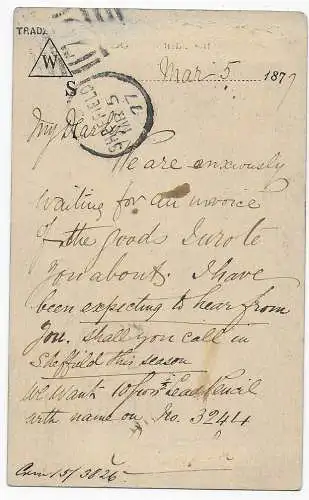 TRADE
W
S
Mar 5 1877
My Dear
We are anxiously
waiting for an invoice
of the goods I wrote
you about. I have
been expecting to hear from
you. shall you call in
Sheffield this season
we want 10 Lead Pencil
with name on No. 3244